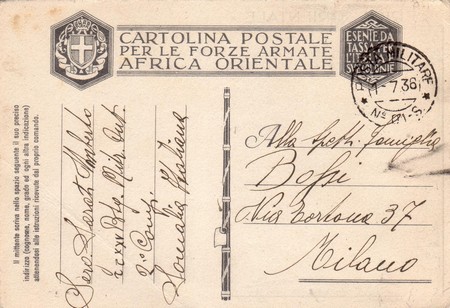 CARTOLINA POSTALE
PER LE FORZE ARMATE
AFRICA ORIENTALE
ESENTE DA
TASSA
L'I
COLONIE
POSTA MILITARE
1-7.36
Nº
S.
Il mittente scriva nello spazio seguente il suo preciso
indirizzo (cognome, nome, grado ed ogni altra indicazione)
attenendosi alle istruzioni ricevute dal proprio comando.
Umberto
Btg.
2ª Comp.
Somalia Italiana
Alla Spett. Famiglia
Bossi
Via Cortona 37
Milano